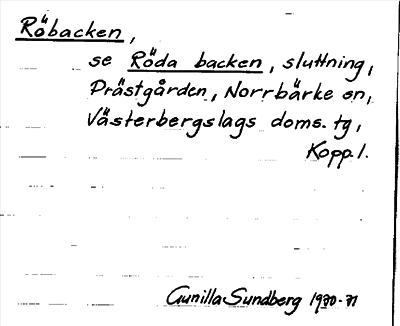 Röbacken,
se Röda backen, sluttning,
Prästgården, Norrbärke sn,
Västerbergslags doms. tg,
Kopp. l.
Gunilla Sundberg 1970-71